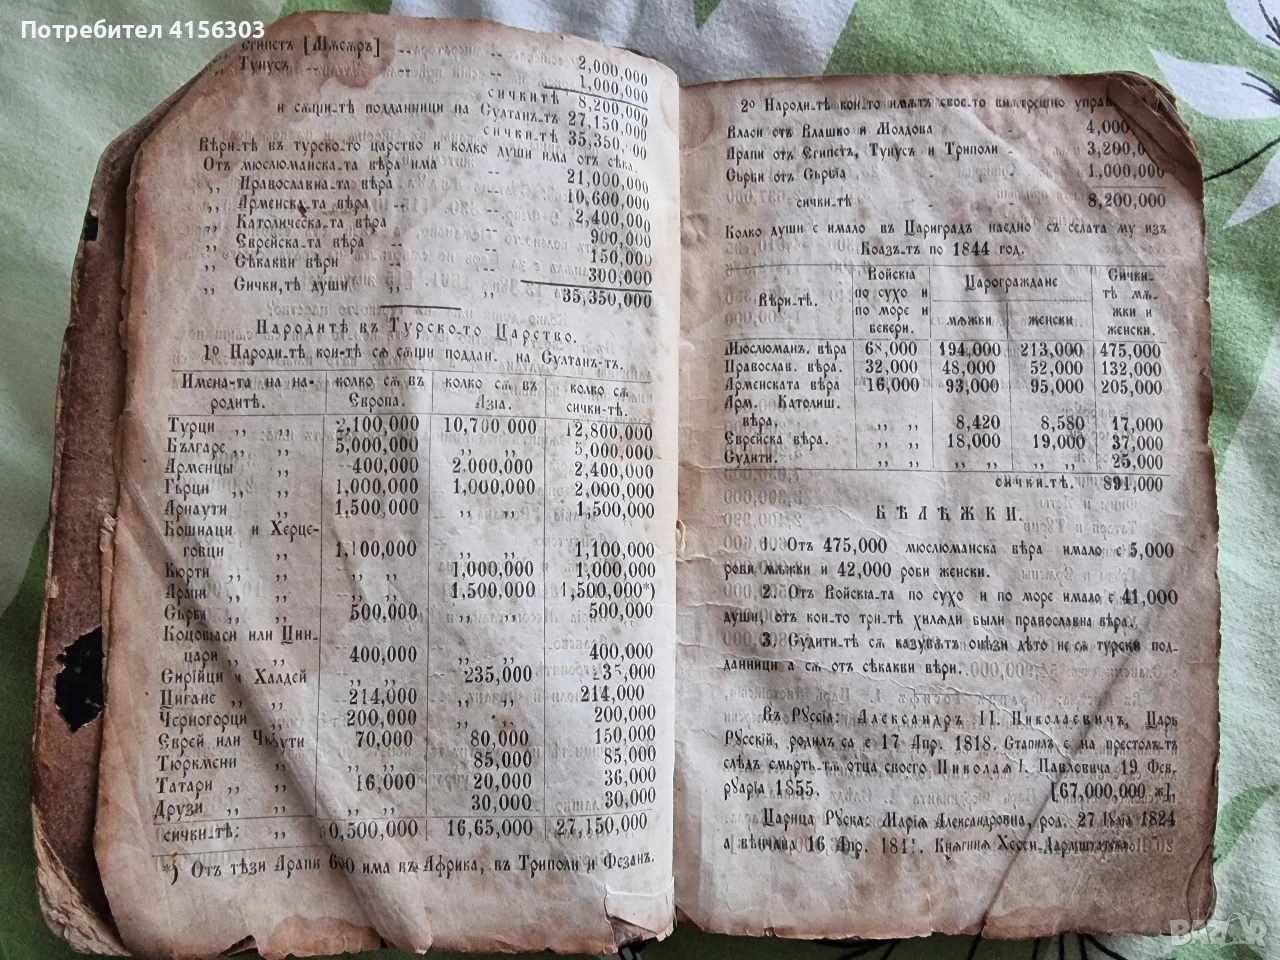 Потребител 4156303
Египетъ [Мѫсѫръ] -- -- 2,000,000
,, Тунусъ -- -- 1,000,000
сичките 8,200,000
и сѫщи-тѣ подданници на Султанъ-тъ 27,150,000
сички-тѣ 35,350,000
Вѣри-тѣ въ турско-то царство и колко души има отъ сѣка.
Отъ мюслюманска-та вѣра има -- 21,000,000
,, Православна-та вѣра -- -- 10,600,000
,, Арменска-та вѣра -- -- 2,400,000
,, Католическа-та вѣра -- 900,000
,, Еврейска-та вѣра -- -- 150,000
,, Сѣкакви вѣри -- -- 300,000
,, Сички-тѣ души ,, ,, 35,350,000
Народитѣ въ Турско-то Царство.
1º Народи-тѣ кои-тѣ сѫ сѫщи поддан. на Султанъ-тъ.
Имена-та на на-родитѣ. колко сѫ въ Европа. колко сѫ въ Азіа. колко сѫ сички-тѣ.
Турци ,, ,, 2,100,000 10,700,000 12,800,000
Българе ,, ,, 5,000,000 ,, ,, 5,000,000
Арменцы ,, 400,000 2,000,000 2,400,000
Гърци ,, ,, 1,000,000 1,000,000 2,000,000
Арнаути ,, 1,500,000 ,, ,, 1,500,000
Бошнаци и Херце-
говци ,, 1,100,000 ,, ,, 1,100,000
Кюрти ,, ,, ,, ,, 1,000,000 1,000,000
Арапи ,, ,, ,, ,, 1,500,000 1,500,000*)
Сърби ,, ,, 500,000 ,, ,, 500,000
Коцовласи или Цин-
цари ,, ,, 400,000 ,, ,, 400,000
Сирійци и Халдей ,, ,, 235,000 235,000
Цигане ,, ,, 214,000 ,, ,, 214,000
Черногорци ,, 200,000 ,, ,, 200,000
Еврей или Чифути 70,000 80,000 150,000
Тюркмени ,, ,, ,, 85,000 85,000
Татари ,, ,, 16,000 20,000 36,000
Друзи ,, ,, ,, ,, 30,000 30,000
сички-тѣ: ,, 0,500,000 16,65,000 27,150,000
*) Отъ тѣзи Арапи 600 има въ Африка, въ Триполи и Фезан.
2º Народи-тѣ кои-то имѫтъ свое-то вѫтрешно управ
Власи отъ Влашко и Молдова - 4,000
Арапи отъ Египетъ, Тунусъ и Триполи - 3,200,000
Сърби отъ Сърбіа - - 1,000,000
сички-тѣ 8,200,000
Колко души е имало въ Цариградъ наедно съ селата му изъ
Боазъ-тъ по 1844 год.
Вѣри-тѣ. Войскіа по сухо и по море и бекери. Цароградждане мѫжки женски Сички-тѣ мѫ-жки и женски.
Мюслюман. вѣра 68,000 194,000 213,000 475,000
Православ. вѣра. 32,000 48,000 52,000 132,000
Арменската вѣра 16,000 93,000 95,000 205,000
Арм. Католиш.
вѣра. ,, ,, 8,420 8,580 17,000
Еврейска вѣра. ,, ,, 18,000 19,000 37,000
Судити. ,, ,, ,, ,, ,, ,, 25,000
сички-тѣ. 891,000
БѢЛѢЖКИ.
1. Отъ 475,000 мюслюманска вѣра имало е 5,000
роби мѫжки и 42,000 роби женски.
2. Отъ Войскіа-та по сухо и по море имало е 41,000
души, отъ кои-то три хиляди были православна вѣра.
3. Судити-тѣ сѫ казуватъ онѣзи дѣто не сѫ турски под-
данници а сѫ отъ сѣкакви вѣри.
Въ Руссіа: Александръ II. Николаевичъ, Царь
Русскій, родилъ са е 17 Апр. 1818. Стапилъ е на престолъ-тъ
слѣдъ смърть-тѫ отца своего Николая I. Павловича 19 Фев-
руаріа 1855. [67,000,000 ж].
Царица Руска: Маріа Александровна, род. 27 Юліа 1824
а вѣнчана 16 Апр. 1841. Княгиня Хесси-Дармштатска
BAZAR